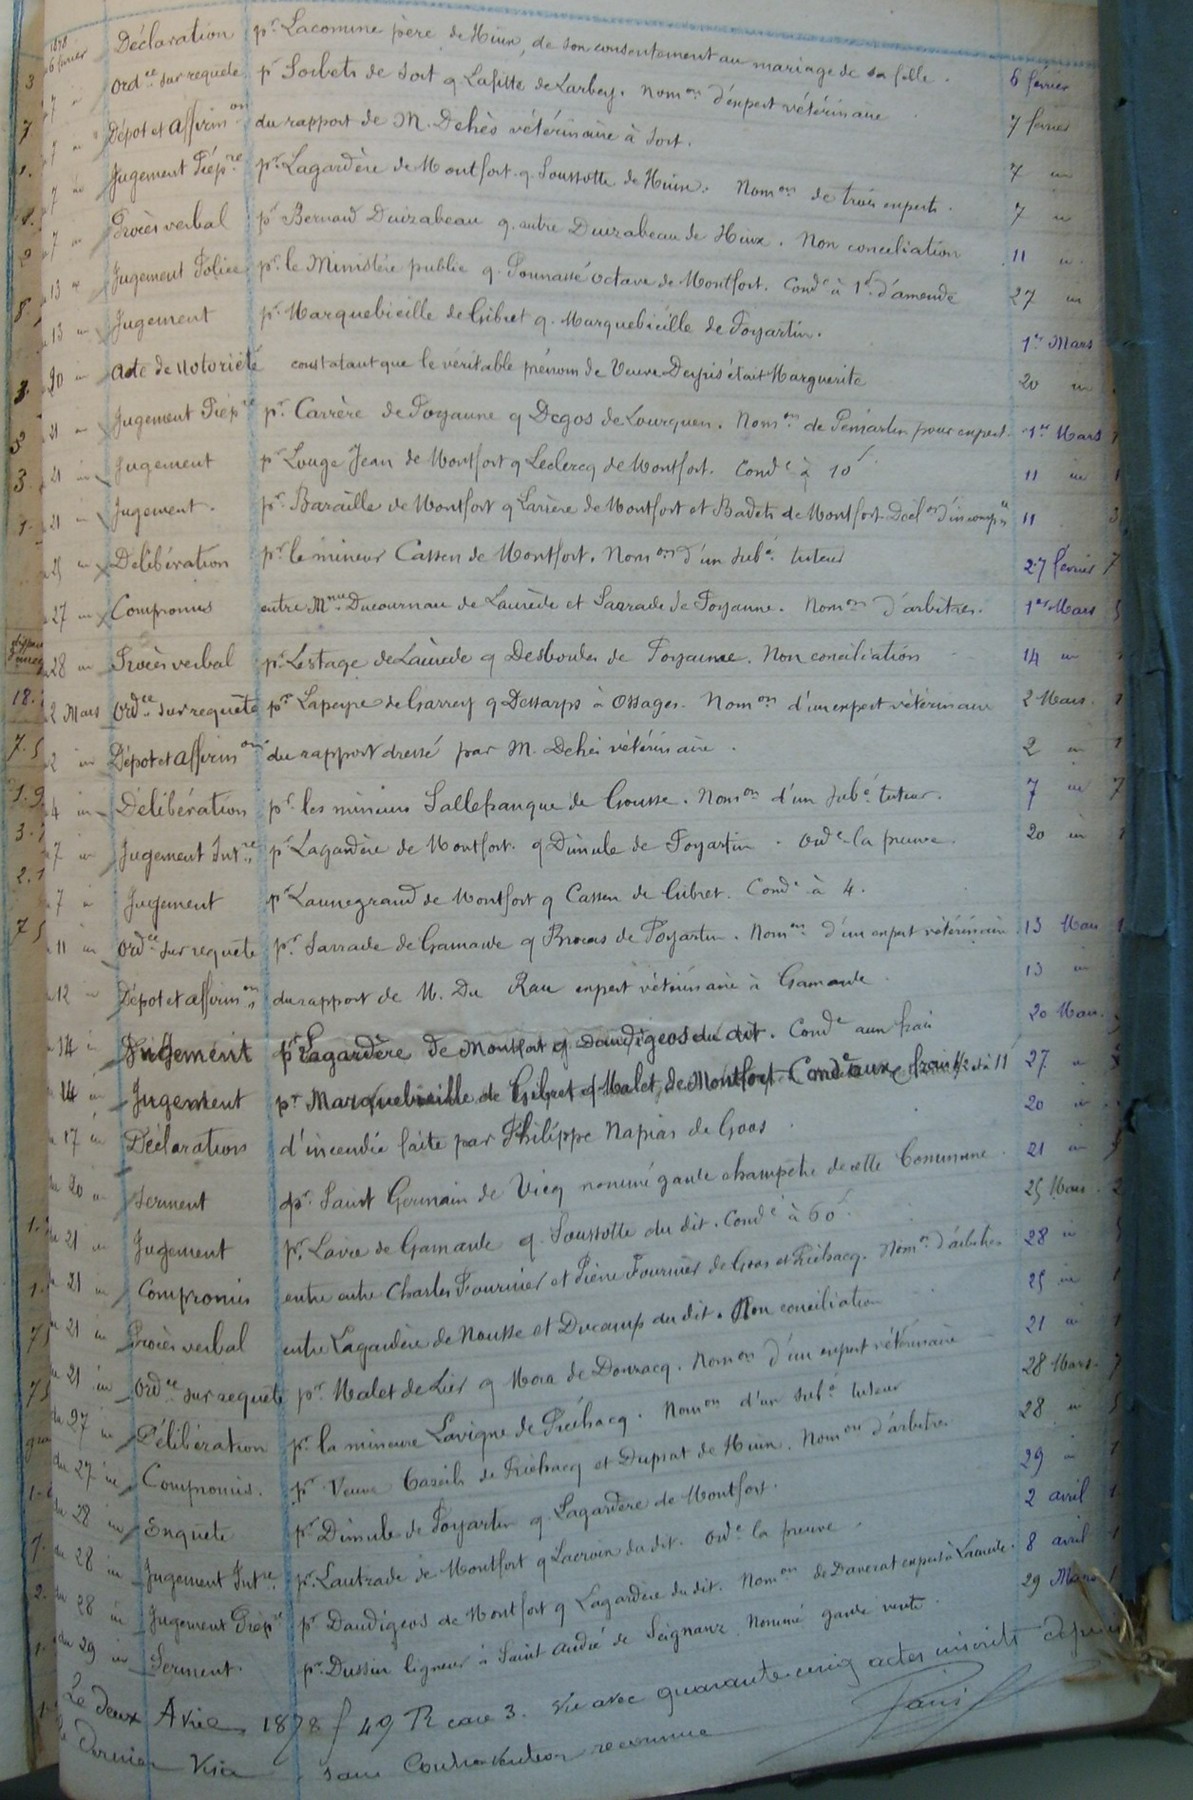 1878
6 février Déclaration pr Lacomme père de Hinx, de son consentement au mariage de sa fille. 6 février
7 in Ordce sur requête pr Sorbets de Sort q Lafitte de Larbey. Nomon d'expert vétérinaire 7 février
7 in Dépot et affirmon du rapport de M. Dehès vétérinaire à Sort. 7 in
7 in Jugement Prépre pr Lagardère de Montfort q. Soussotte de Hinx. Nomon de trois experts. 7 in
7 in Procès verbal pr Bernard Duirabeau q. autre Duirabeau de Hinx. Non conciliation 11 in
13 in Jugement Police pr le Ministère public q. Pounassé octave de Montfort. Condé à 1f d'amende 27 in
13 in Jugement pr Marquebieille de Gibret q. Marquebieille de Poyartin. 1er Mars
20 in Acte de notoriété constatant que le véritable prénom de Veuve Dupis était Marguerite 20 in
21 in Jugement Prépre pr Carrère de Poyanne q Degos de Lourquen. Nomon de Pémartin pour expert. 1er Mars
21 in Jugement pr Louge Jean de Montfort q Leclercq de Montfort. Condé à 10f 11 in
21 in Jugement. pr Baraille de Montfort q Larrère de Montfort et Badets de Montfort. Déclon d'incompce 11
25 in Délibération pr le mineur Cassen de Montfort. Nomon d'un subé tuteur 27 février
27 in Compromis entre Mme Ducournau de Laurède et Sarrade de Poyanne. Nomon d'arbitres. 1er Mars
28 in Procès verbal pr Lestage de Laurède q Desboudes de Poyanne. Non conciliation 14 in
2 Mars Ordce sur requête pr Lapeyre de Garrey q Dessarps à Ossages. Nomon d'un expert vétérinaire 2 Mars.
2 in Dépot et affirmon du rapport dressé par M. Dehès vétérinaire. 2 in
4 in Délibération pr les mineurs Sallefranque de Gousse. Nomon d'un subé tuteur. 7 in
7 in Jugement Intre pr Lagardère de Montfort q Dimule de Poyartin. Ordé la preuve. 20 in
7 in Jugement pr Launegrand de Montfort q Cassen de Gibret. Condé à 4.
11 in Ordce sur requête pr Sarrade de Gamarde q Brocas de Poyartin. Nomon d'un expert vétérinaire 13 Mars
12 in Dépot et affirmon du rapport de M. Du Rau expert vétérinaire à Gamarde 13 in
14 in Jugement pr Lagardère de Montfort q. Daudigeos du dit. Condé aux frais 20 Mars
14 in Jugement pr Marquebieille de Gibret q Malet de Montfort Condé aux frais 1/2 et à 11f 27 in
17 in Déclaration d'incendie faite par Philippe Napias de Goos. 20 in
du 20 in Serment pr. Saint Germain de Vicq nommé garde champêtre de cette Commune. 21 in
du 21 in Jugement pr Lavie de Gamarde q. Soussotte du dit. Condé à 60f. 25 Mars
du 21 in Compromis entre autre Charles Fournier et Pierre Fournier de Goos et Préchacq. Nomon d'arbitres 28 in
21 in Procès verbal entre Lagardère de Nousse et Ducamp du dit. Non conciliation 25 in
du 21 in Ordce sur requête pr Malet de Lier q Mora de Donzacq. Nomon d'un expert vétérinaire 21 in
du 27 in Délibération pr la mineure Lavigne de Préchacq. Nomon d'un subé tuteur 28 Mars
du 27 in Compromis. pr Veuve Cazeils de Préchacq et Duprat de Hinx. Nomon d'arbitres 28 in
du 28 in Enquête pr Dimule de Poyartin q Lagardère de Montfort. 29 in
du 28 in Jugement Intre pr Lautrade de Montfort q Lacroix du dit. Ordé la preuve. 2 avril
du 28 in Jugement Prépre pr Daudigeos de Montfort q Lagardère du dit. Nomon de Daverat expert à Laurède. 8 avril
du 29 in Serment. pr Dussin ligneur à Saint André de Seignanx. Nommé garde vente. 29 Mars
Le deux Avril 1878 f 49 R case 3. Vu avec quarante cinq actes inscrits depuis
le dernier Visa sans Contravention reconnue